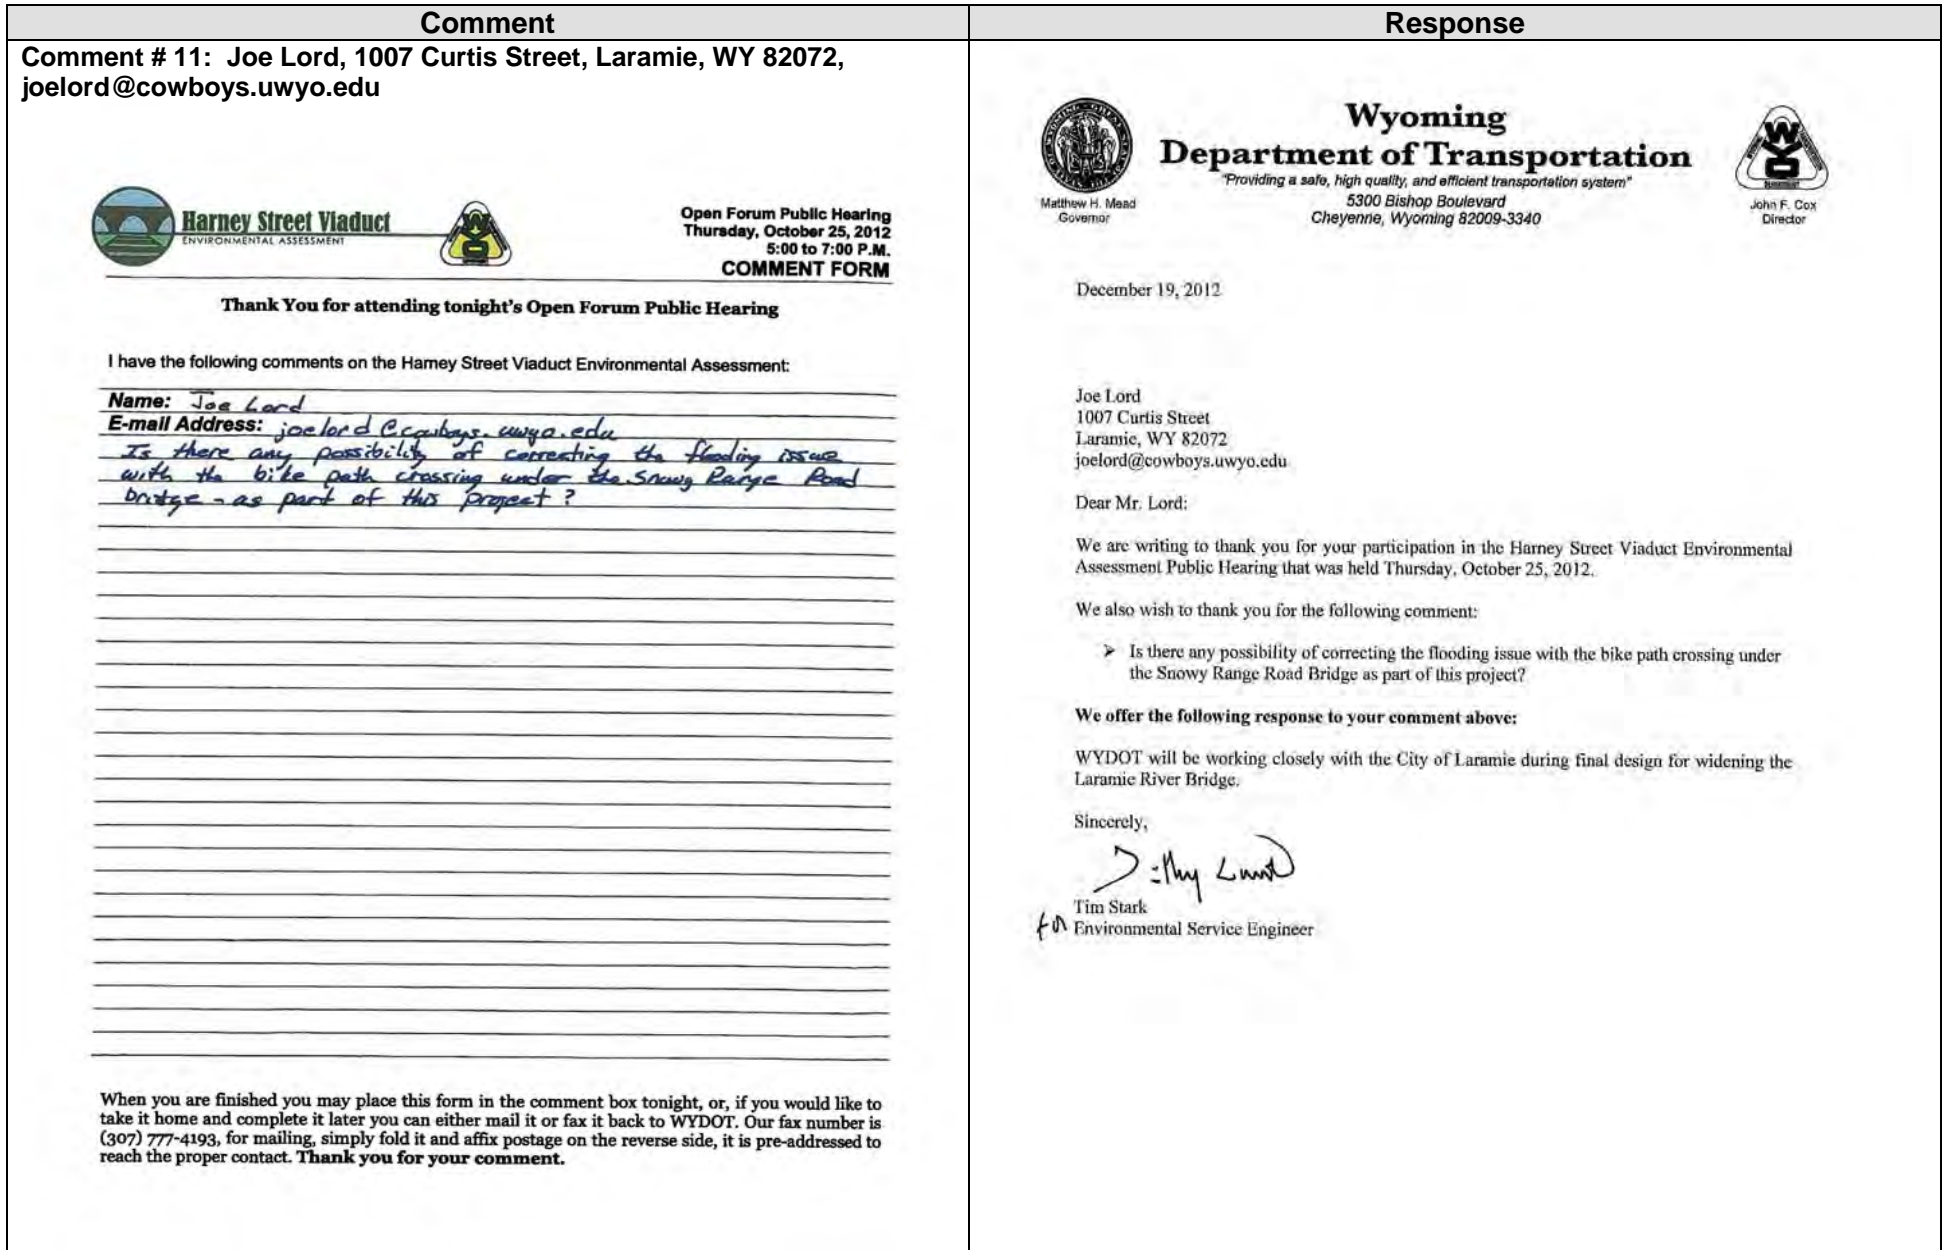 Comment
Response
Comment # 11: Joe Lord, 1007 Curtis Street, Laramie, WY 82072,
joelord@cowboys.uwyo.edu
Harney Street Viaduct
ENVIRONMENTAL ASSESSMENT
Open Forum Public Hearing
Thursday, October 25, 2012
5:00 to 7:00 P.M.
COMMENT FORM
Thank You for attending tonight's Open Forum Public Hearing
I have the following comments on the Harney Street Viaduct Environmental Assessment:
Name: Joe Lord
E-mail Address: joelord@cowboys.uwyo.edu
Is there any possibility of correcting the flooding issue
with the bike path crossing under the Snowy Range Road
bridge - as part of this project?
When you are finished you may place this form in the comment box tonight, or, if you would like to
take it home and complete it later you can either mail it or fax it back to WYDOT. Our fax number is
(307) 777-4193, for mailing, simply fold it and affix postage on the reverse side, it is pre-addressed to
reach the proper contact. Thank you for your comment.
Wyoming
Department of Transportation
"Providing a safe, high quality, and efficient transportation system"
5300 Bishop Boulevard
Cheyenne, Wyoming 82009-3340
Matthew H. Mead
Governor
John F. Cox
Director
December 19, 2012
Joe Lord
1007 Curtis Street
Laramie, WY 82072
joelord@cowboys.uwyo.edu
Dear Mr. Lord:
We are writing to thank you for your participation in the Harney Street Viaduct Environmental
Assessment Public Hearing that was held Thursday, October 25, 2012.
We also wish to thank you for the following comment:
➢ Is there any possibility of correcting the flooding issue with the bike path crossing under
the Snowy Range Road Bridge as part of this project?
We offer the following response to your comment above:
WYDOT will be working closely with the City of Laramie during final design for widening the
Laramie River Bridge.
Sincerely,
Tim Stark
for Environmental Service Engineer